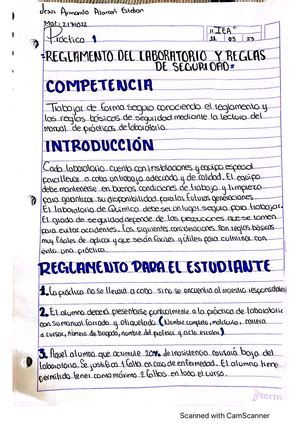 Jesus Armando Alemán Esteban
Mat: 2171022
Práctica 1
"IEA"
11 03 23
•REGLAMENTO DEL LABORATORIO Y REGLAS
DE SEGURIDAD•
COMPETENCIA
Trabajar de forma segura conociendo el reglamento y
las reglas básicas de seguridad mediante la lectura del
manual de prácticas de laboratorio.
INTRODUCCIÓN
Cada laboratorio cuenta con instalaciones y equipo especial
para llevar a cabo un trabajo adecuado y de calidad. El equipo
debe mantenerse en buenas condiciones de trabajo y limpieza
para garantizar su disponibilidad para las futuras generaciones.
El laboratorio de Química debe ser un lugar seguro para trabajar.
El grado de seguridad depende de las precauciones que se tomen
para evitar accidentes. Las siguientes consideraciones son reglas básicas
muy fáciles de aplicar y que serán fáciles y útiles para culminar con
éxito una práctica.
REGLAMENTO PARA EL ESTUDIANTE
1. La práctica no se llevará a cabo, si no se encuentra el maestro responsable
2. El alumno deberá presentarse puntualmente a la práctica de laboratorio
con su manual forrado y etiquetado. (Nombre completo, matrícula, carrera
a cursar, número de brigada, nombre del profesor y ciclo escolar)
3. Aquel alumno que acumule 20% de inasistencia, causará baja del
laboratorio. Se justifica 1 falta en caso de enfermedad. El alumno tiene
permitido tener como máximo 2 faltas en todo el curso.
Norma
Scanned with CamScanner